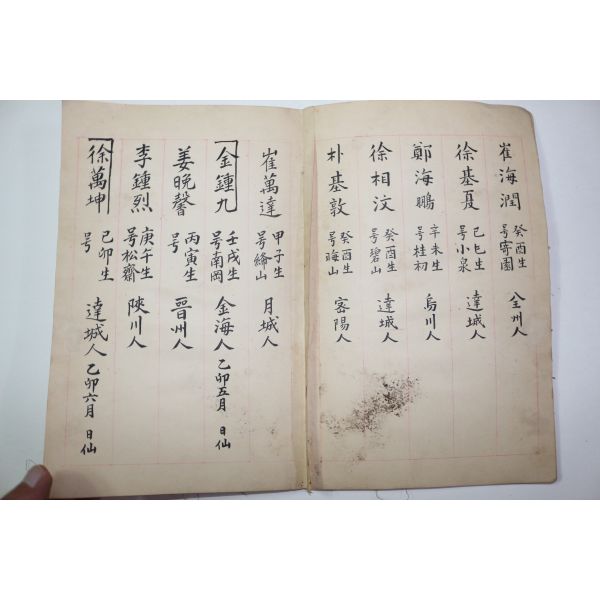 崔海潤 癸酉生 号寄園 全州人
徐基夏 己巳生 号小泉 達城人
鄭海鵬 辛未生 号桂初 烏川人
徐相汶 癸酉生 号碧山 達城人
朴基敦 癸酉生 号晦山 密陽人
崔萬達 甲子生 号絳山 月城人
金鍾九 壬戌生 号南岡 金海人 乙卯五月 日仙
姜晩馨 丙寅生 号 晋州人
李鍾烈 庚午生 号松齋 陜川人
徐萬坤 己卯生 号 達城人 乙卯六月 日仙